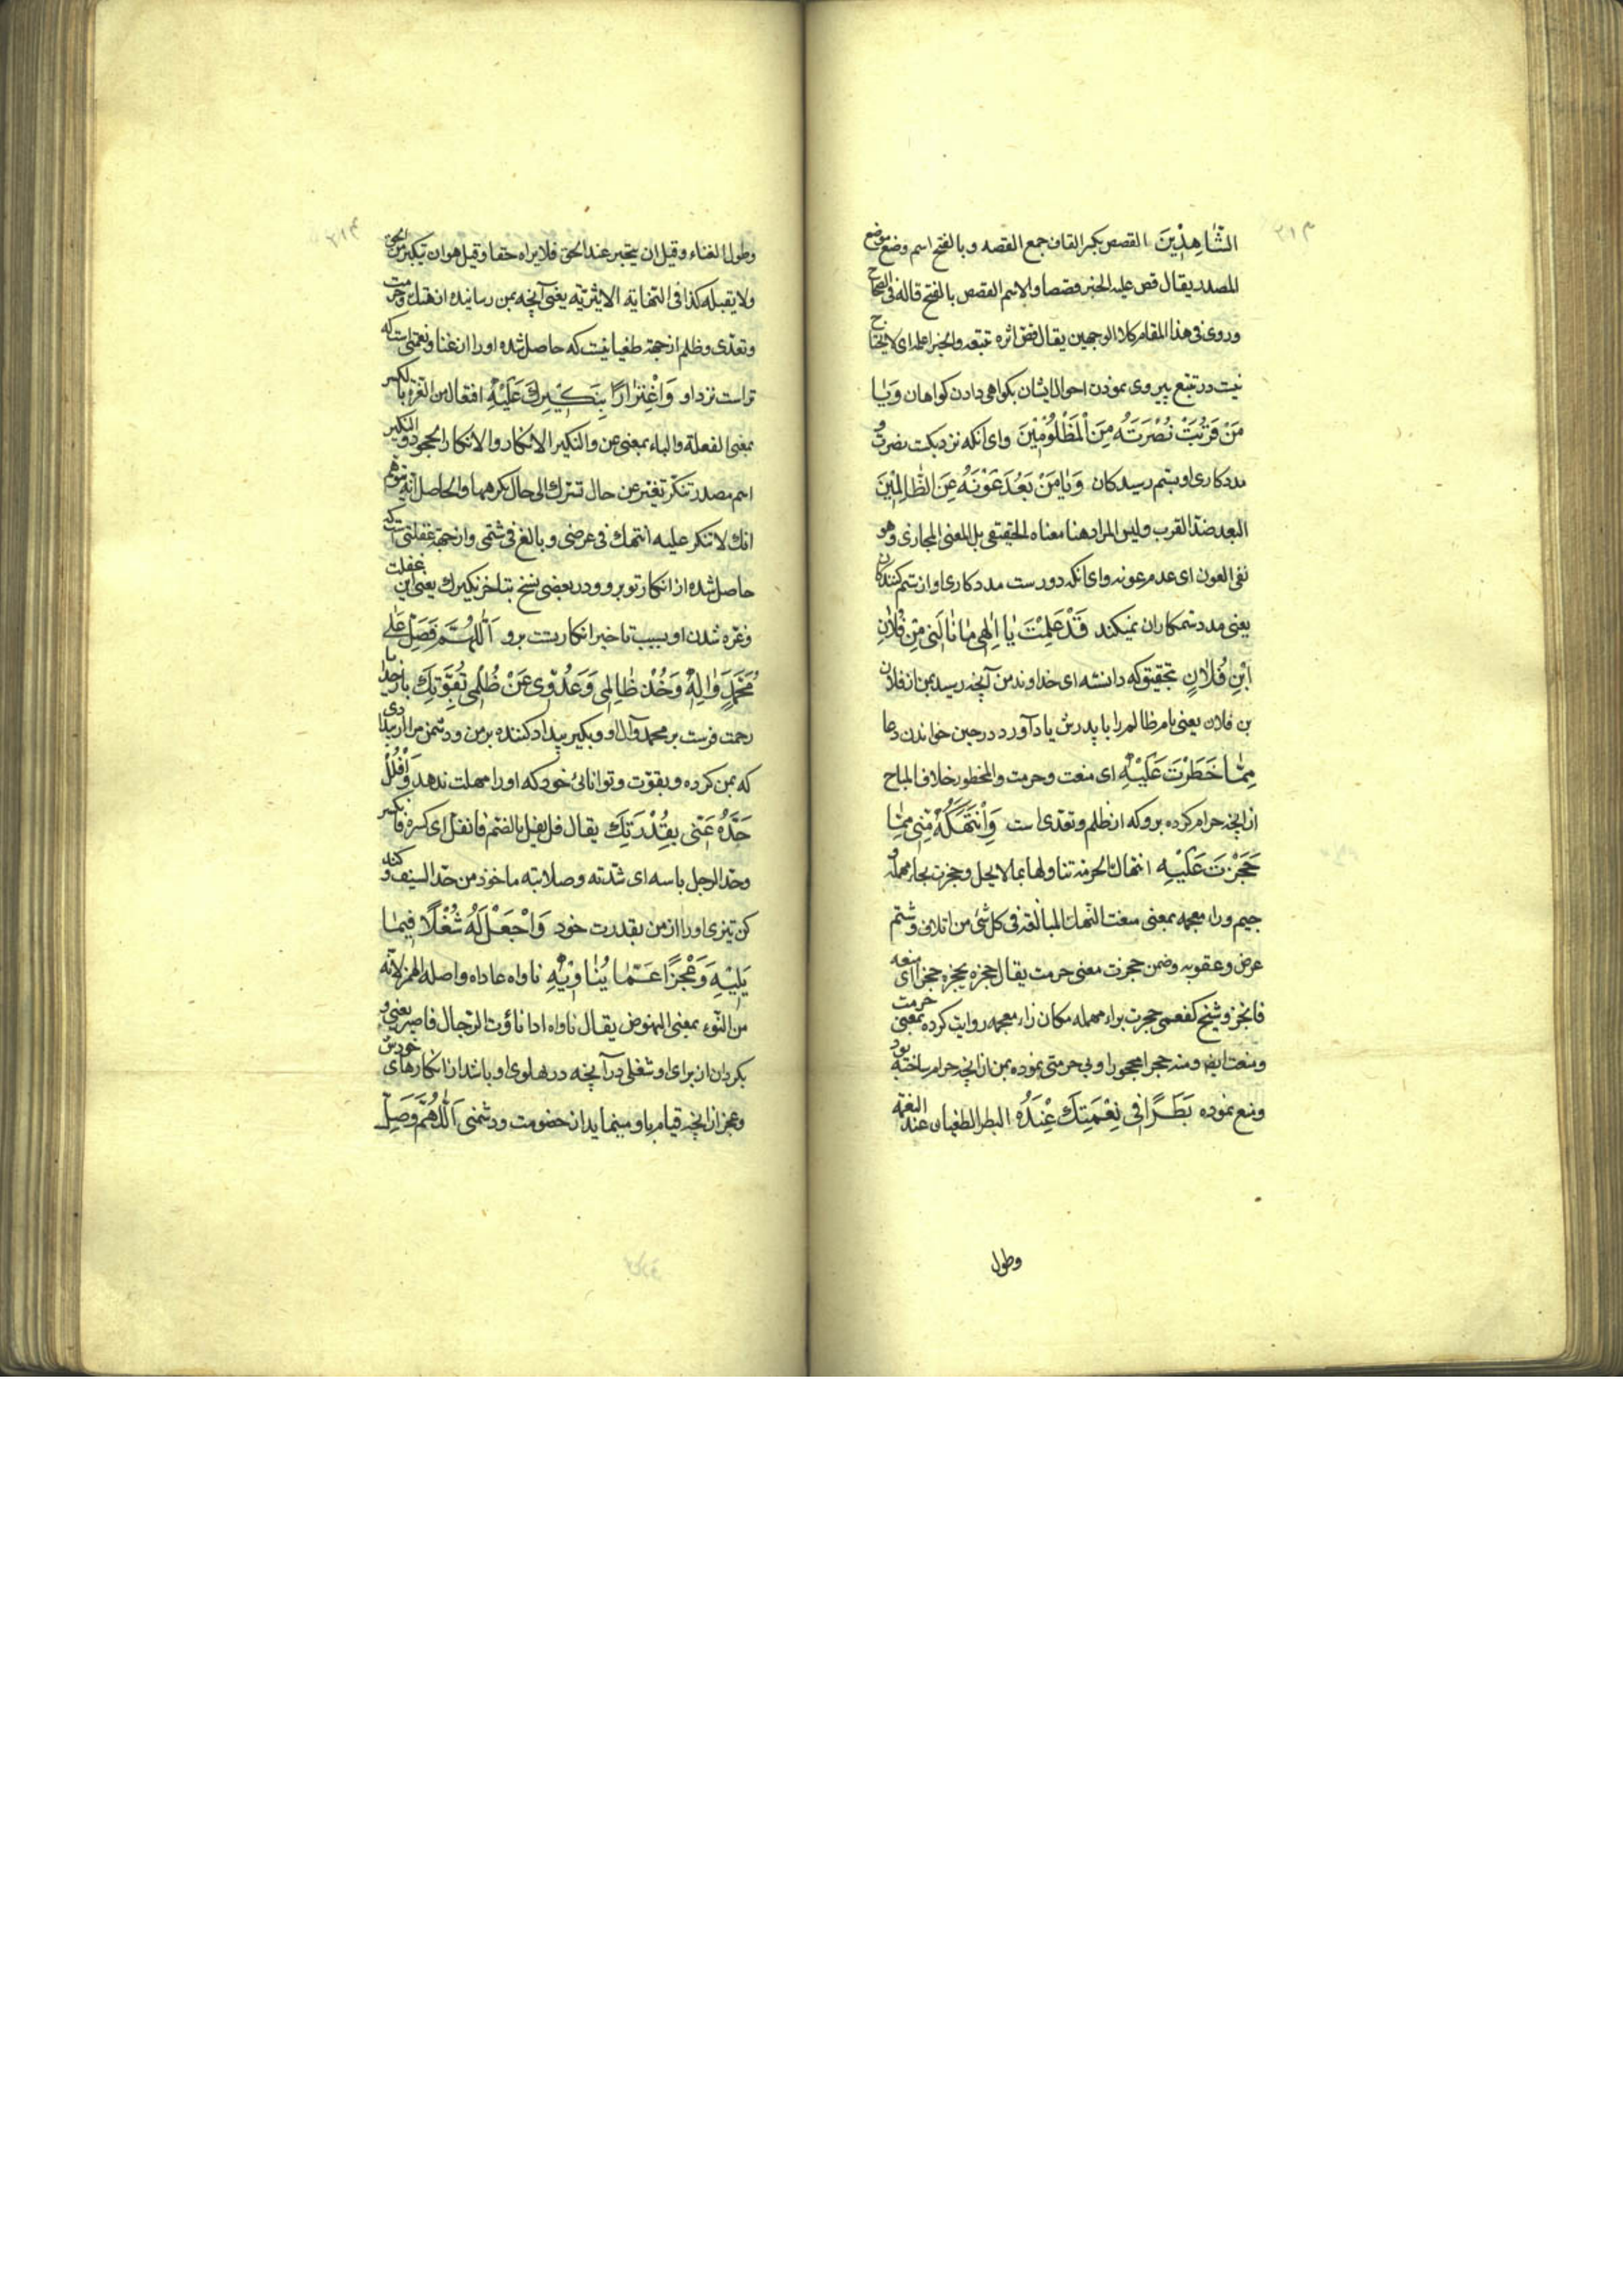 الشَّاهِدِینَ القصص بکسر القاف جمع القصه و بالفتح اسم وضع موضع
المصدر یقال قص علیه الخبر قصصا والاسم القصص بالفتح قاله فی الصحاح
وروی فی هذا المقام کلا الوجهین یقال قص اثره تتبعه والخبر اعلمه ای لا یحتاج
نیست در تتبع پیروی نمودن احوال ایشان بکواهی دادن کواهان وَیَا
مَنْ قَرُبَتْ نُصْرَتُهُ مِنَ الْمَظْلُوْمِیْنَ وای آنکه نزدیکست نصرت و
مددکاری او بستم رسیدکان وَیَا مَنْ بَعُدَ عَوْنُهُ عَنِ الظّٰلِمِیْنَ
البعد ضدّ القرب ولیس المراد هنا معناه الحقیقی بل المعنی المجازی وهو
نفی العون ای عدم عونه وای آنکه دورست مددکاری او از ستم کنندکان
یعنی مدد ستمکاران نمیکند قَدْ عَلِمْتَ یٰا اِلٰهِی مٰا نٰالَنِی مِنْ فُلٰانِ
ابْنِ فُلٰانٍ بتحقیق که دانسته ای خداوند من آنچه رسید بمن از فلان
بن فلان یعنی نام ظالم را با پدرش یاد آورد در حین خواندن دعا
مِمّٰا حَظَرْتَ عَلَیْهِ ای منعت و حرمت والمحظور خلاف المباح
از آنچه حرام کرده برو که از ظلم و تعدی است وَانْتَهَکَهُ مِنِّی مِمّٰا
حَجَزْتَ عَلَیْهِ انتهاك الحرمة تناولها بما لا یحل وحجزت بحاء مهمله و
جیم و زاء معجمه بمعنی منعت النهك المبالغة فی کل شئ من اتلاف وشتم
عرض و عقوبه وضمن حجزت معنی حرمت یقال حجزه یحجزه حجزا ای منعه
فانحجز و شیخ کفعمی حجرت براء مهمله مکان زاء معجمه روایت کرده بمعنی حرمت
ومنعت ایضا ومنه حجرا محجورا و بی حرمتی نموده بمن از آنچه حرام ساخته بود
ومنع نموده بَطَرًا فِی نِعْمَتِكَ عِنْدَهُ البطر الطغیان عند النعمة
وطول
وطول الغناء وقیل ان یتجبر عند الحق فلا یراه حقا وقیل هو ان یتکبر من الحق
ولا یقبله کذا فی النهایة الاثیریة یعنی آنچه بمن رسانیده از هتك حرمت
و تعدی و ظلم از جهة طغیانیست که حاصل شده او را از غنا و نعمتی است که
تراست نزد او وَاغْتِرَارًا بِنَکِیْرِكَ عَلَیْهِ افتعال من الغرة بالکسر
بمعنی الغفلة والباء بمعنی عن والنکیر الانکار والانکار الجحود والنکیر
اسم مصدر تنکر تغیر عن حال تسرك الی حال تکرهها والحاصل انه توهم
انك لا تنکر علیه انتهك فی عرضی و بالغ فی شتمی و از جهة غفلتی است که
حاصل شده از انکار تو برو و در بعضی نسخ بتاخر نکیرك یعنی این غفلت
و غره شدن او بسبب تاخیر انکار تست برو اَللّٰهُمَّ فَصَلِّ عَلٰی
مُحَمَّدٍ وَاٰلِهِ وَخُذْ ظٰالِمِی وَعَدُوِّی عَنْ ظُلْمِی بِقُوَّتِكَ بار خدایا
رحمت فرست بر محمد وآل او و بکیر بیداد کننده بر من و دشمن مرا از بیدادی
که بمن کرده و بقوّت و توانائی خود که او را مهلت ندهد وَافْلُلْ
حَدَّهُ عَنِّی بِقُدْرَتِكَ یقال فل یفل بالضم فانفل ای کسره فانکسر
وحد الرجل باسه ای شدته وصلابته ماخوذ من حد السیف و کند
کن تیزی او را از من بقدرت خود وَاجْعَلْ لَهُ شُغْلًا فِیمٰا
یَلِیْهِ وَعَجْزًا عَمّٰا یُنٰاوِیْهِ ناواه عاداه واصله الهمز لانه
من النّوء بمعنی النهوض یقال ناواه اذا ناؤت الرجال فاصبر یعنی و
بکردان از برای او شغلی در آنچه در پهلوی او باشد از انکارهای خودش
وعجز از آنچه قیام باو مینماید از خصومت ودشمنی اَللّٰهُمَّ وَصَلِّ